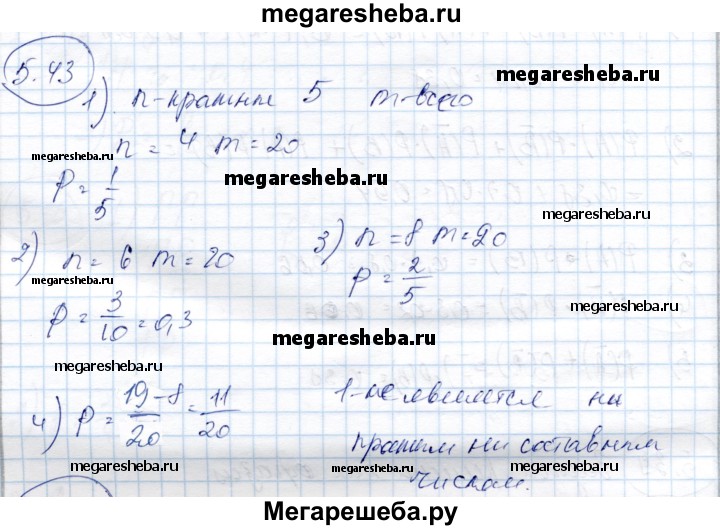 megaresheba.ru
5.43
megaresheba.ru
1) n-кратным 5 m-всего
n = 4 m = 20
megaresheba.ru
P = 1/5
megaresheba.ru
megaresheba.ru
2) n = 6 m = 20
3) n = 8 m = 20
P = 2/5
P = 3/10 = 0,3
megaresheba.ru
megaresheba.ru
4) P = (19 - 8)/20 = 11/20
1-не является ни
megaresheba.ru
простым ни составным
megaresheba.ru
megaresheba.ru
megaresheba.ru
числом.
Мегарешеба.ру